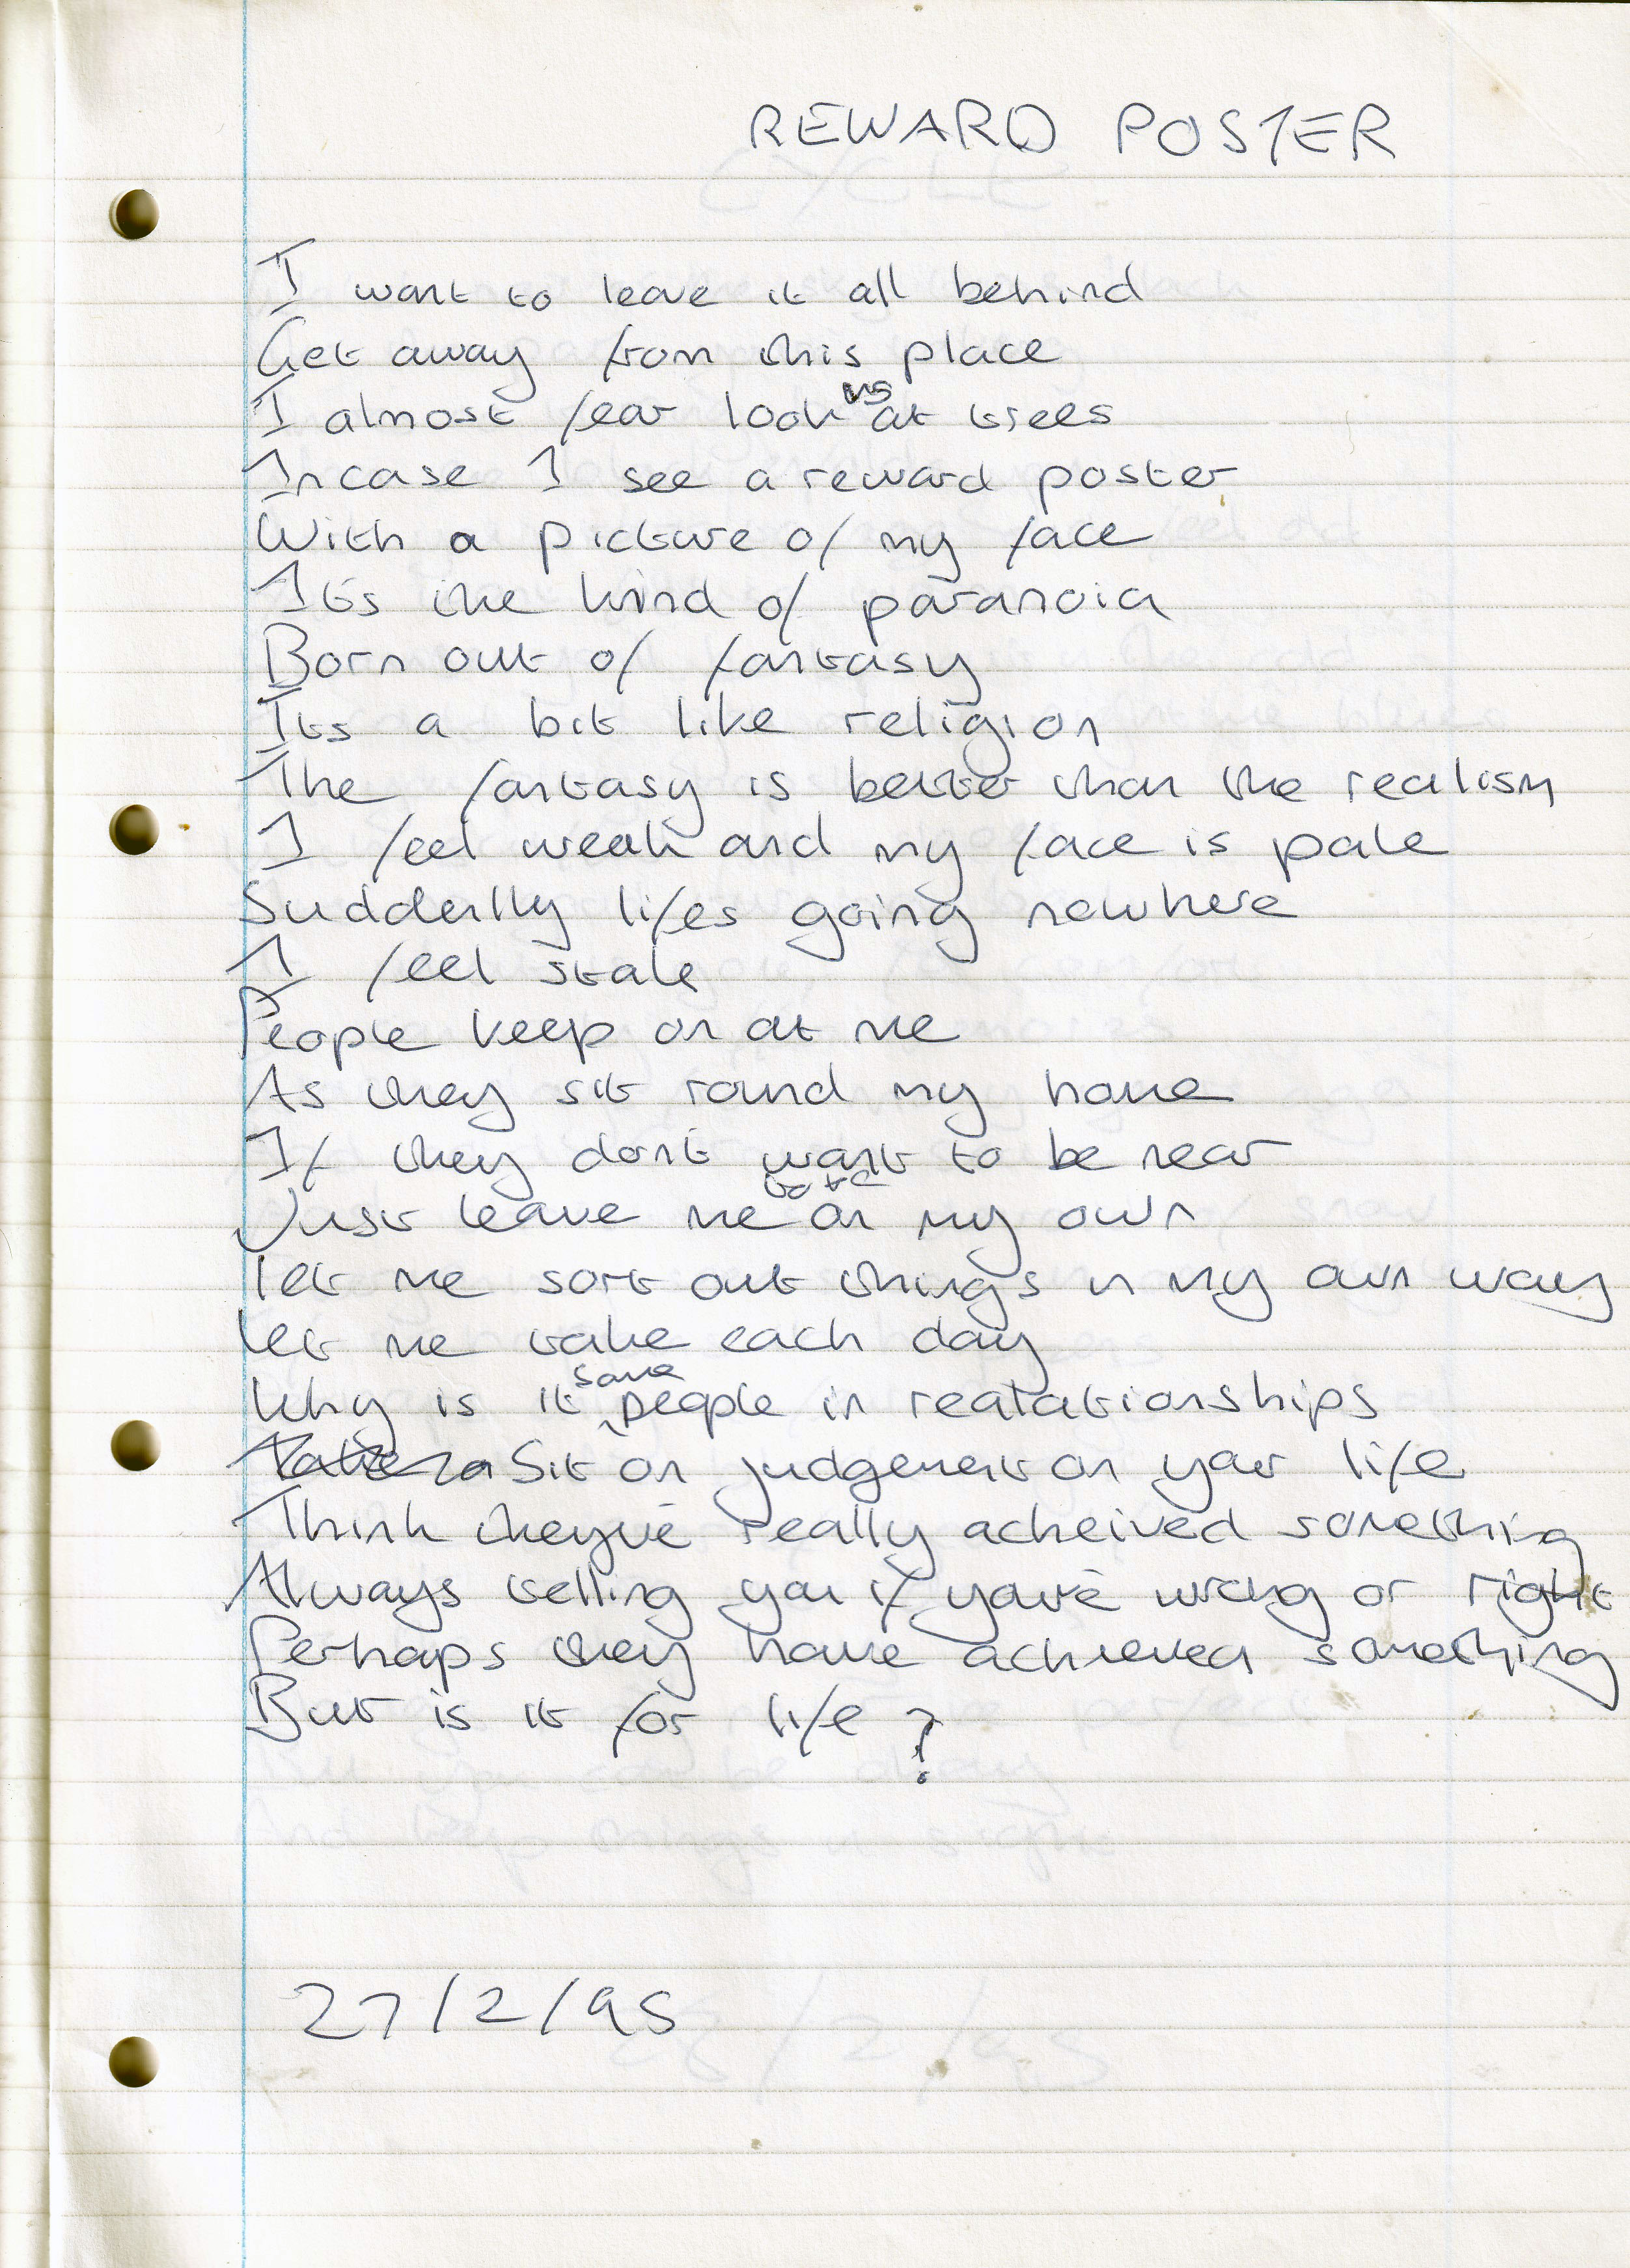 REWARD POSTER
I want to leave it all behind
Get away from this place
I almost fear looking at trees
Incase I see a reward poster
With a picture of my face
It's the kind of paranoia
Born out of fantasy
Its a bit like religion
The fantasy is better than the realism
I feel weak and my face is pale
Suddenlly lifes going nowhere
I feel stale
People keep on at me
As they sit round my home
If they don't want to be near
Just leave me on my own
let me sort out things in my own way
let me take each day
Why is it some people in reatationships
Sit on judgement on your life
Think they've really acheived something
Always telling you if you're wrong or right
Perhaps they have achieved something
But is it for life?
27/2/95